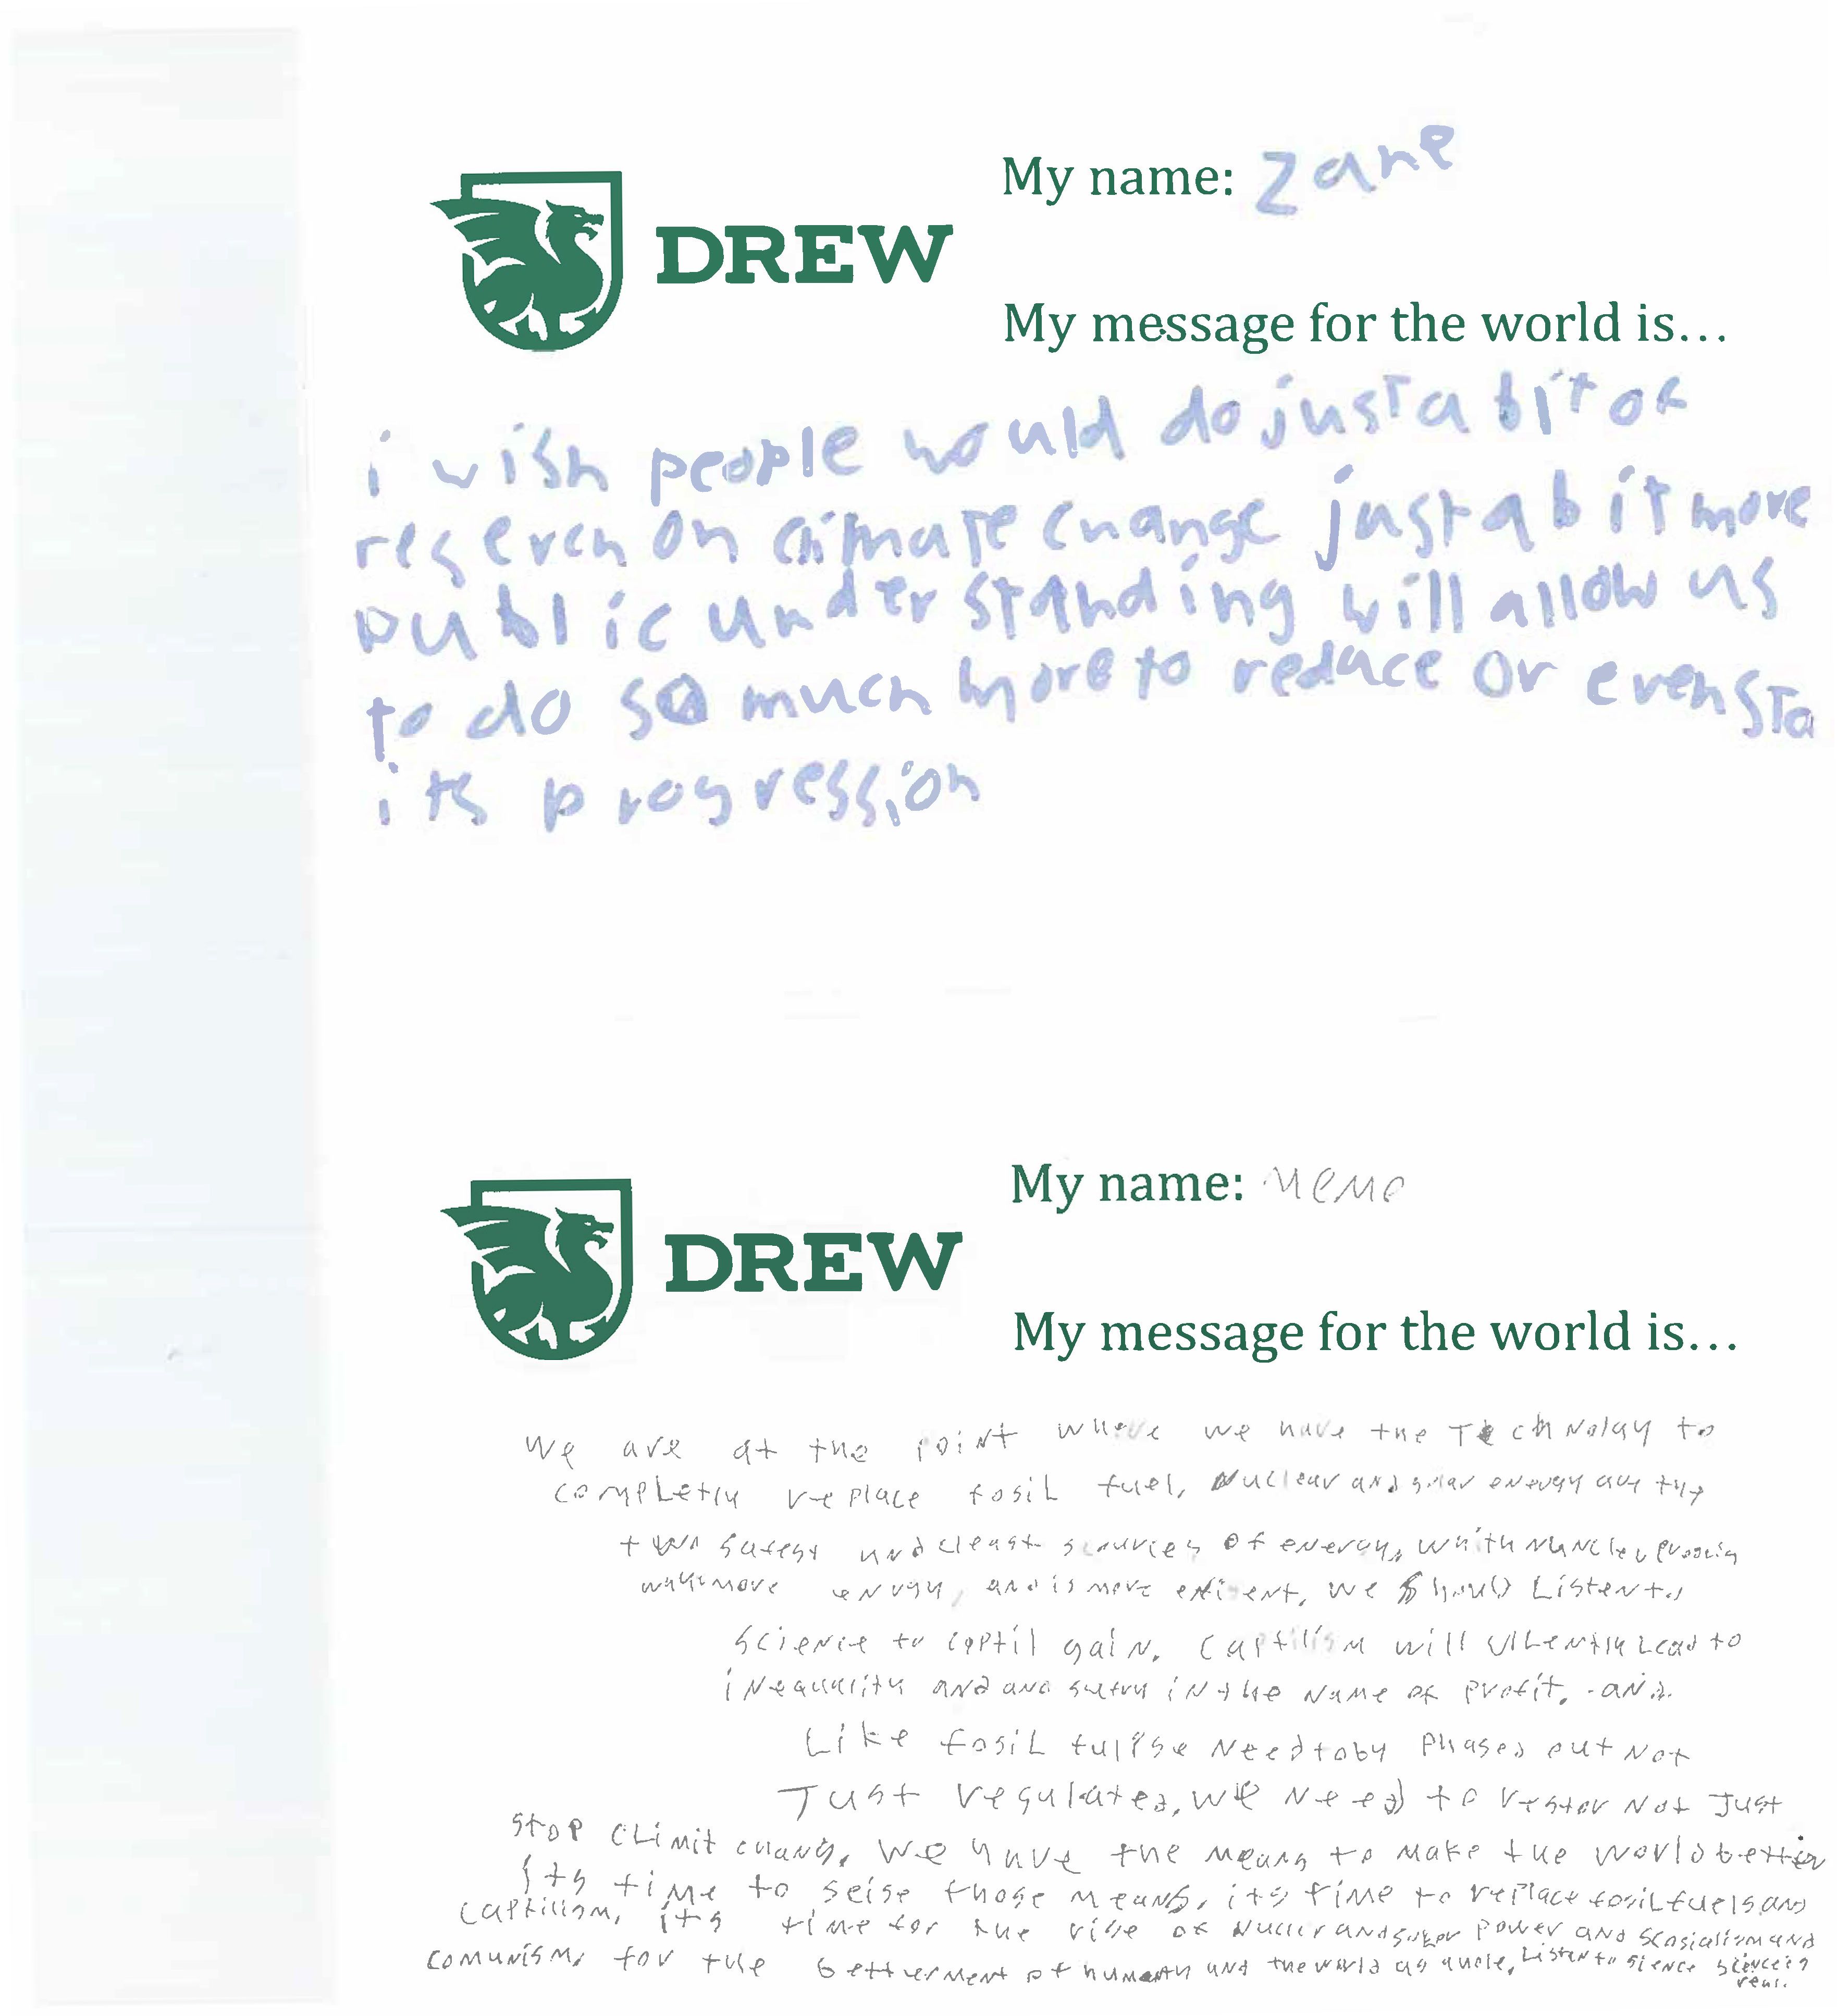 My name: zane
DREW
My message for the world is...
i wish people would do just a bit of
reserch on climate change just a bit more
public understanding will allow us
to do so much more to reduce or even sto
its progression
My name: Memo
DREW
My message for the world is...
We are at the point where we have the Technolay to
completly replace fosil fuel, Nuclear and solar energy are the
two safest and cleast sources of energy, with
more energy, and is more efficent, we should Listen to
science to coptil gain. Captilism will Lead to
inequality and and in the name of profit. and.
Like fosil need to by phased out Not
Just regulated, we Need to restor Not Just
stop CLimit chang, we have the means to make the world better
its time to seise those means, its time to replace fosil fuels and
captilism, its time for the rise of and power and scosialism and
comunism, for the betterment of humanity and the world as a whole, Listen to sience science is
real.